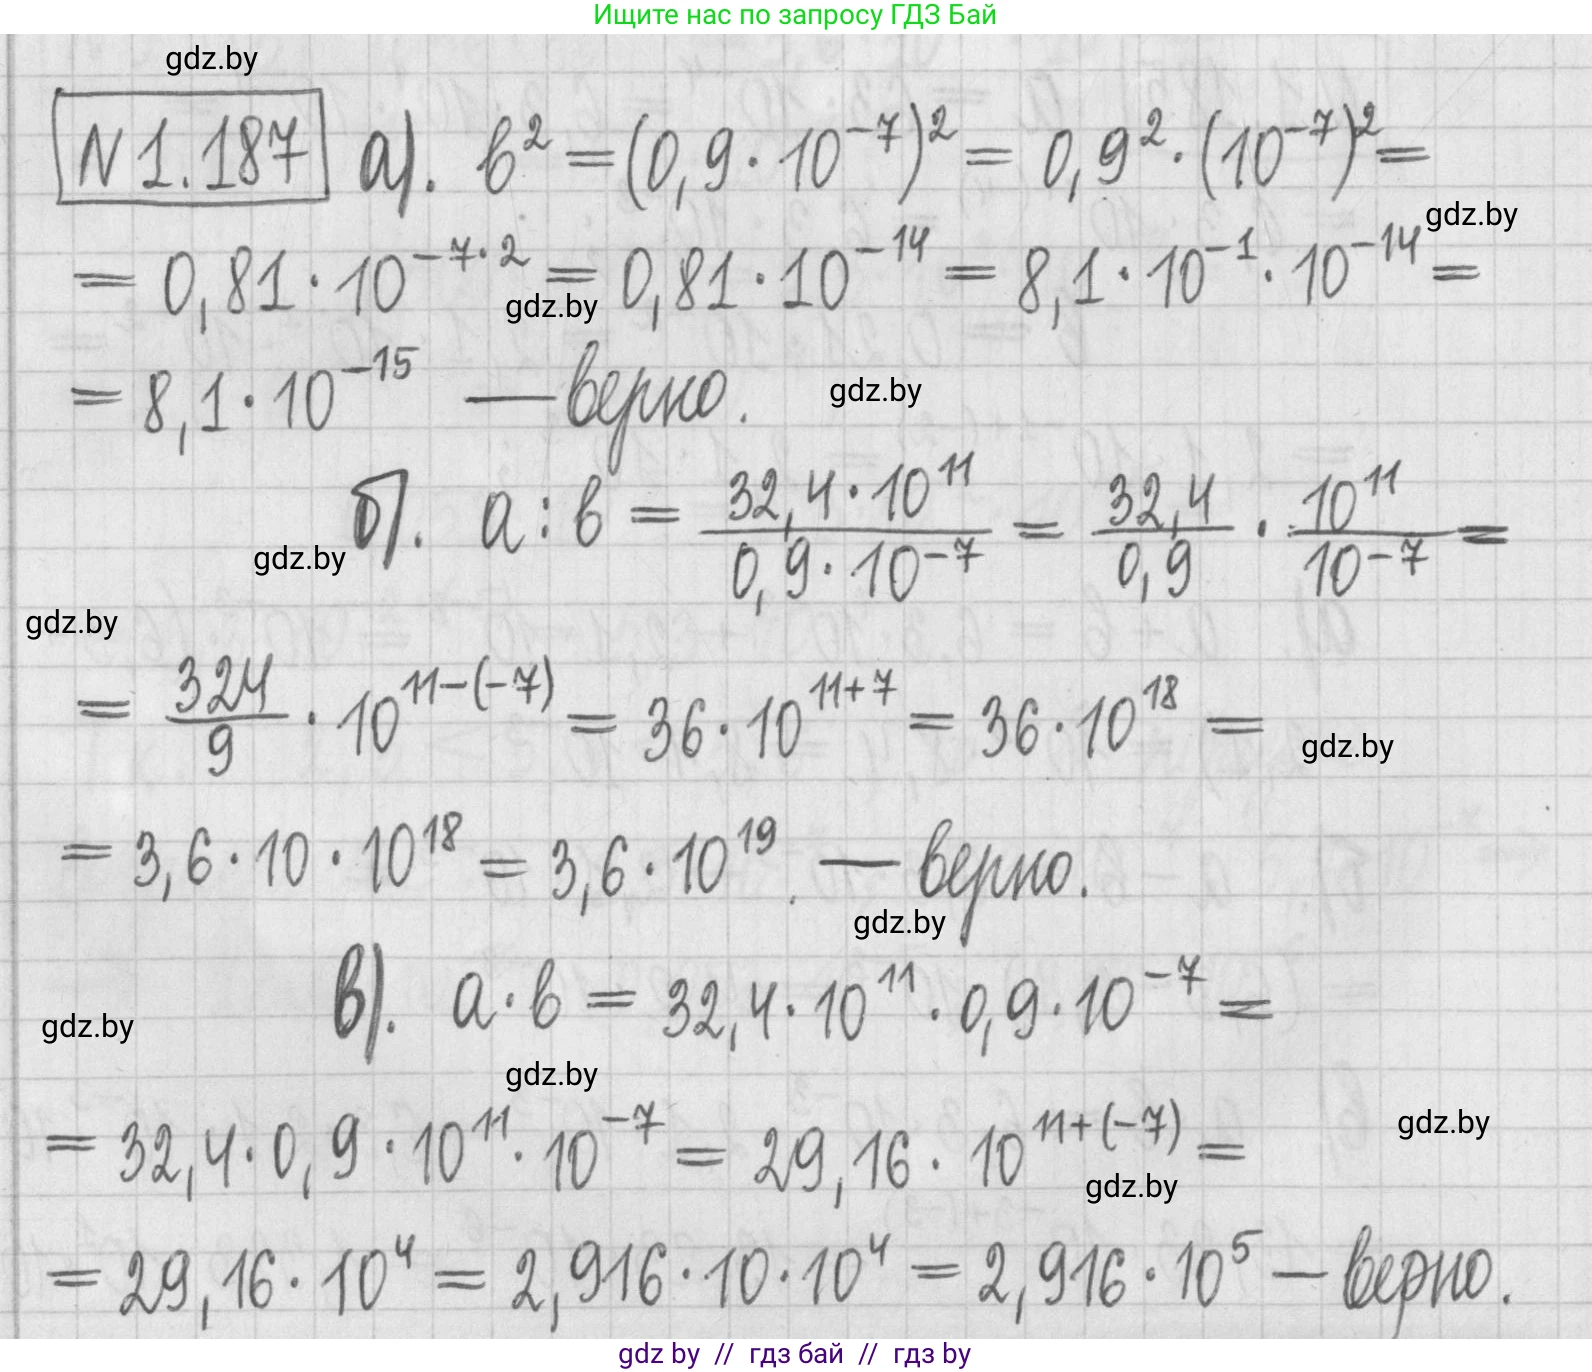 Ищите нас по запросу ГДЗ Бай
gdz.by
N 1.187 а). b² = (0,9 · 10⁻⁷)² = 0,9² · (10⁻⁷)² =
gdz.by
= 0,81 · 10⁻⁷·² = 0,81 · 10⁻¹⁴ = 8,1 · 10⁻¹ · 10⁻¹⁴ =
gdz.by
= 8,1 · 10⁻¹⁵ — верно.
gdz.by
б). a : b = (32,4 · 10¹¹)/(0,9 · 10⁻⁷) = 32,4/0,9 · 10¹¹/10⁻⁷ =
gdz.by
gdz.by
= 324/9 · 10¹¹⁻⁽⁻⁷⁾ = 36 · 10¹¹⁺⁷ = 36 · 10¹⁸ =
gdz.by
= 3,6 · 10 · 10¹⁸ = 3,6 · 10¹⁹. — верно.
gdz.by
в). a · b = 32,4 · 10¹¹ · 0,9 · 10⁻⁷ =
gdz.by
gdz.by
= 32,4 · 0,9 · 10¹¹ · 10⁻⁷ = 29,16 · 10¹¹⁺⁽⁻⁷⁾ =
gdz.by
gdz.by
= 29,16 · 10⁴ = 2,916 · 10 · 10⁴ = 2,916 · 10⁵ — верно.
gdz by // гдз бай // гдз by